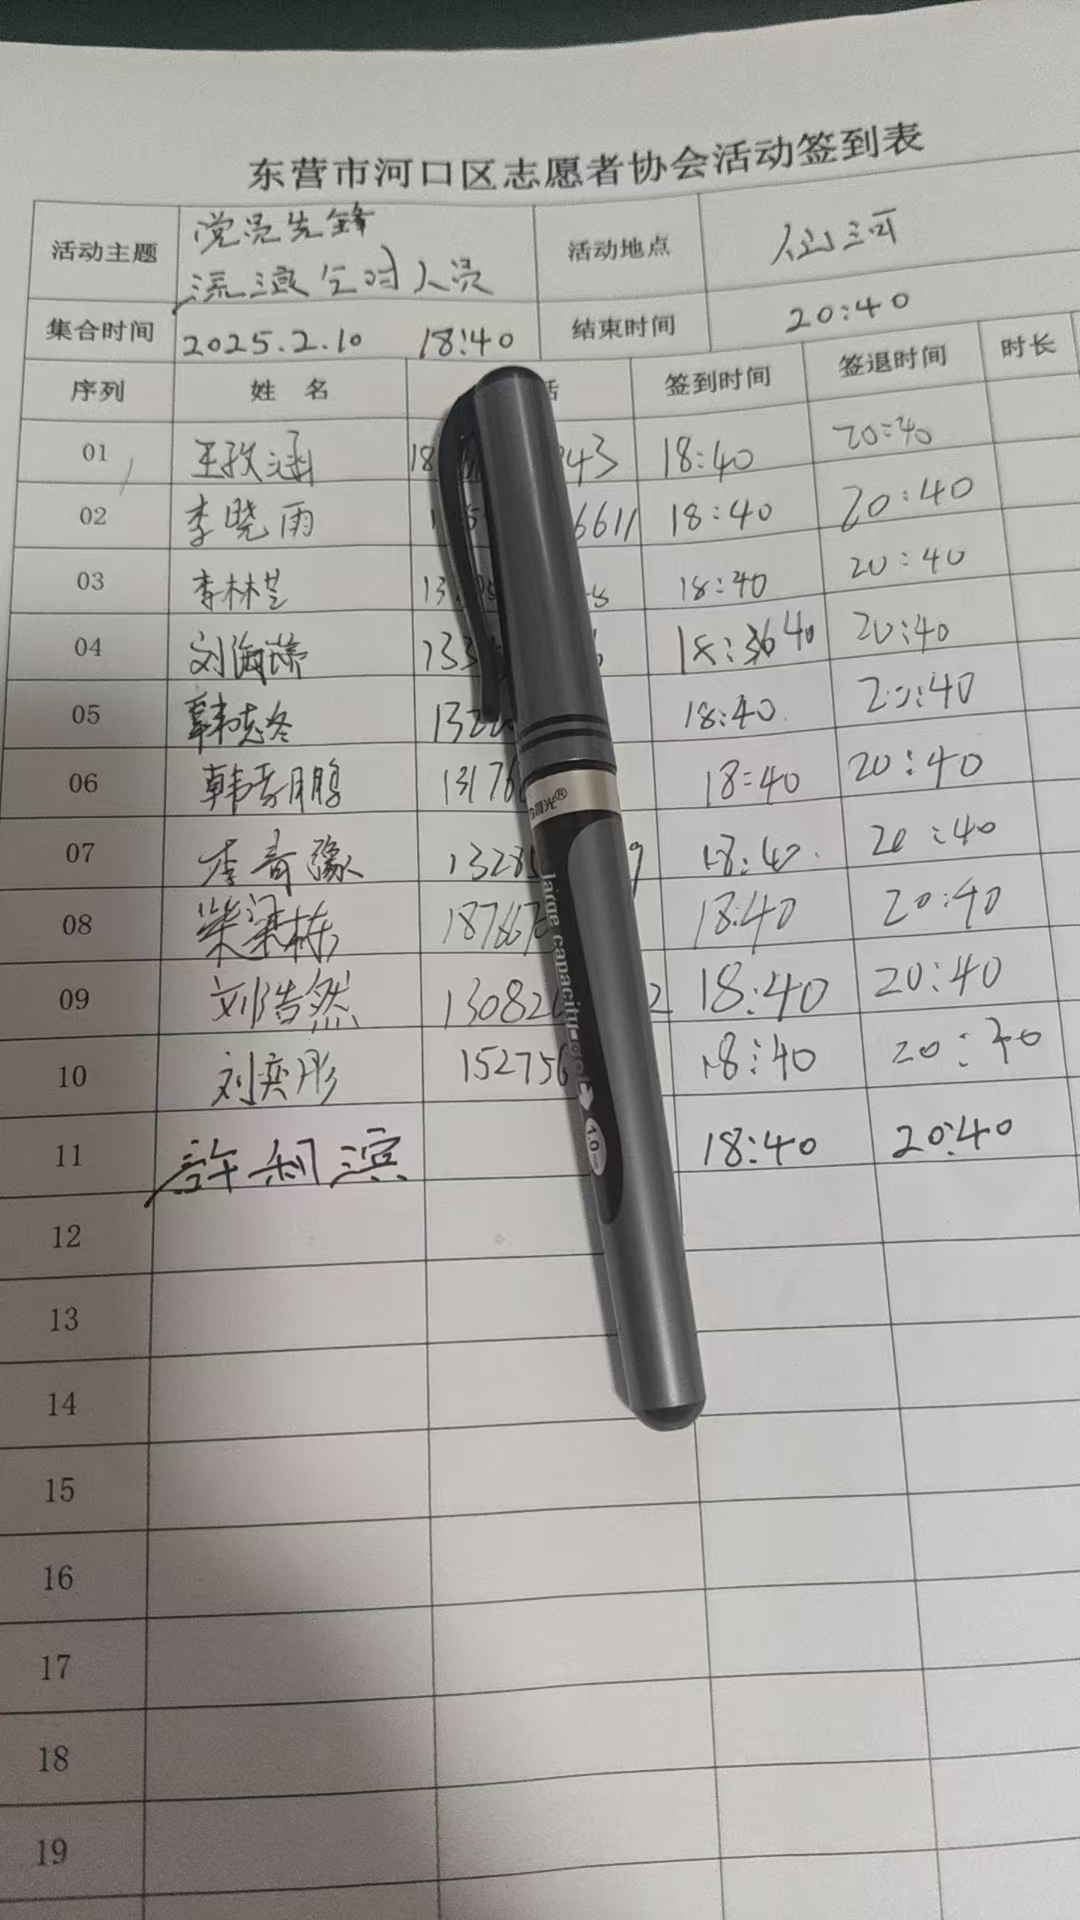 东营市河口区志愿者协会活动签到表
活动主题 党员先锋 活动地点 仙河
人员
集合时间 2025.2.10 18:40 结束时间 20:40
序列 姓 名 话 签到时间 签退时间 时长
01 王孜涵 18 243 18:40 20:40
02 李晓雨 6611 18:40 20:40
03 李林芝 13 18:40 20:40
04 刘海 133 18:36 40 20:40
05 韩志冬 132 18:40 20:40
06 韩 鹏 13176 18:40 20:40
07 李奇豫 1328 9 18:40 20:40
08 柴梁栋 18766 18:40 20:40
09 刘浩然 13082 2 18:40 20:40
10 刘奕彤 15275 18:40 20:40
11 許利滨 18:40 20:40
12
13
14
15
16
17
18
19
晨光®
large capacity gel
1.0mm